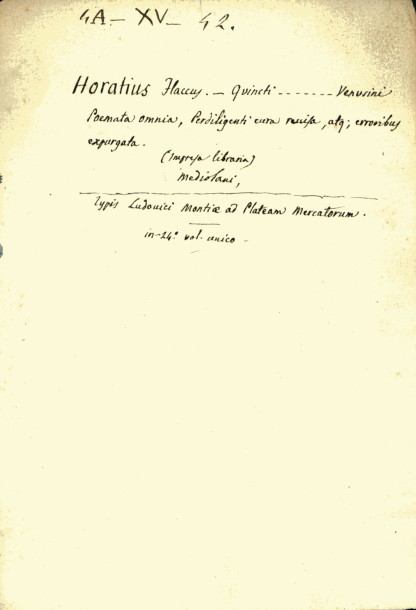 4A - XV - 42.
Horatius Flaccus. - Quincti ------- Venusini
Poemata omnia, Perdiligenti cura revisa, atq; erroribus
expurgata.
(Impresa libraria)
Mediolani,
Typis Ludovici Montiæ ad Plateam Mercatorum.
in-24.º vol. unico -